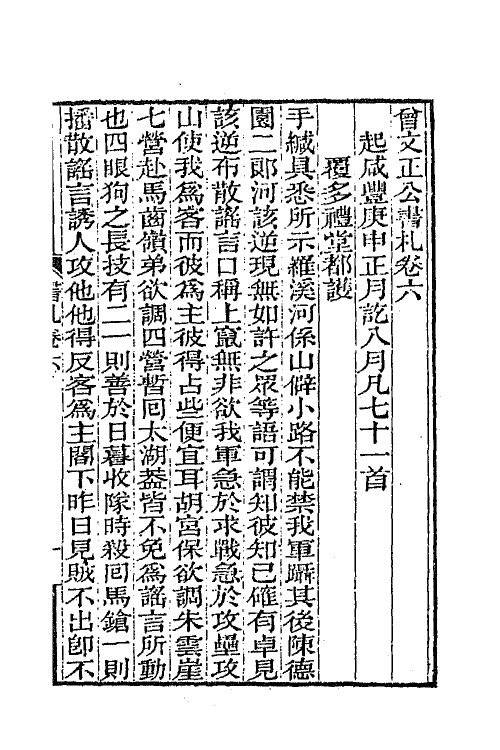 曾文正公書札卷六
起咸豐庚申正月訖八月凡七十一首
覆多禮堂都護
手緘具悉所示羅溪河係山僻小路不能禁我軍躡其後陳德
園二郞河該逆現無如許之眾等語可謂知彼知己確有卓見
該逆布散謠言口稱上竄無非欲我軍急於求戰急於攻壘攻
山使我爲客而彼爲主彼得占些便宜耳胡宮保欲調朱雲崖
七營赴馬齒嶺弟欲調四營暫回太湖葢皆不免爲謠言所動
也四眼狗之長技有二一則善於日暮收隊時殺回馬鎗一則
播散謠言誘人攻他他得反客爲主閣下昨日見賊不出卽不
書札卷六
一